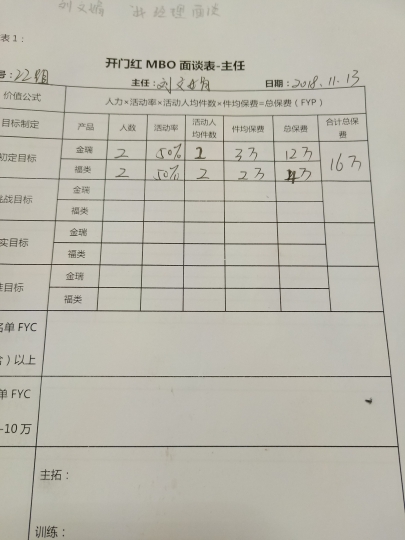 表1：
开门红 MBO 面谈表-主任
号：22期 主任：刘文娟 日期：2018.11.13
价值公式 人力×活动率×活动人均件数×件均保费=总保费（FYP）
目标制定 产品 人数 活动率 活动人均件数 件均保费 总保费 合计总保费
初定目标 金瑞 2 50% 2 3万 12万 16万
福类 2 50% 2 2万 4万
挑战目标 金瑞
福类
实目标 金瑞
福类
准目标 金瑞
福类
名单 FYC
）以上
单 FYC
-10万
主拓：
训练：